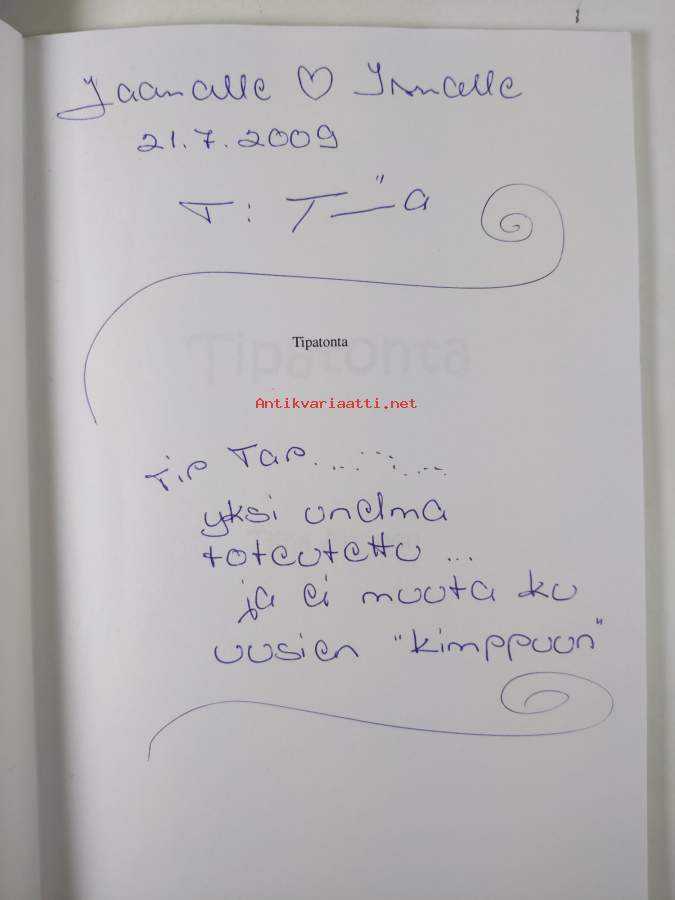 Jaanalle ♡ Irmalle
21.7.2009
T: T—"a
Tipatonta
Antikvariaatti.net
Tip Tap.......
yksi unelma
toteutettu ...
ja ei muuta ku
uusien "kimppuun"